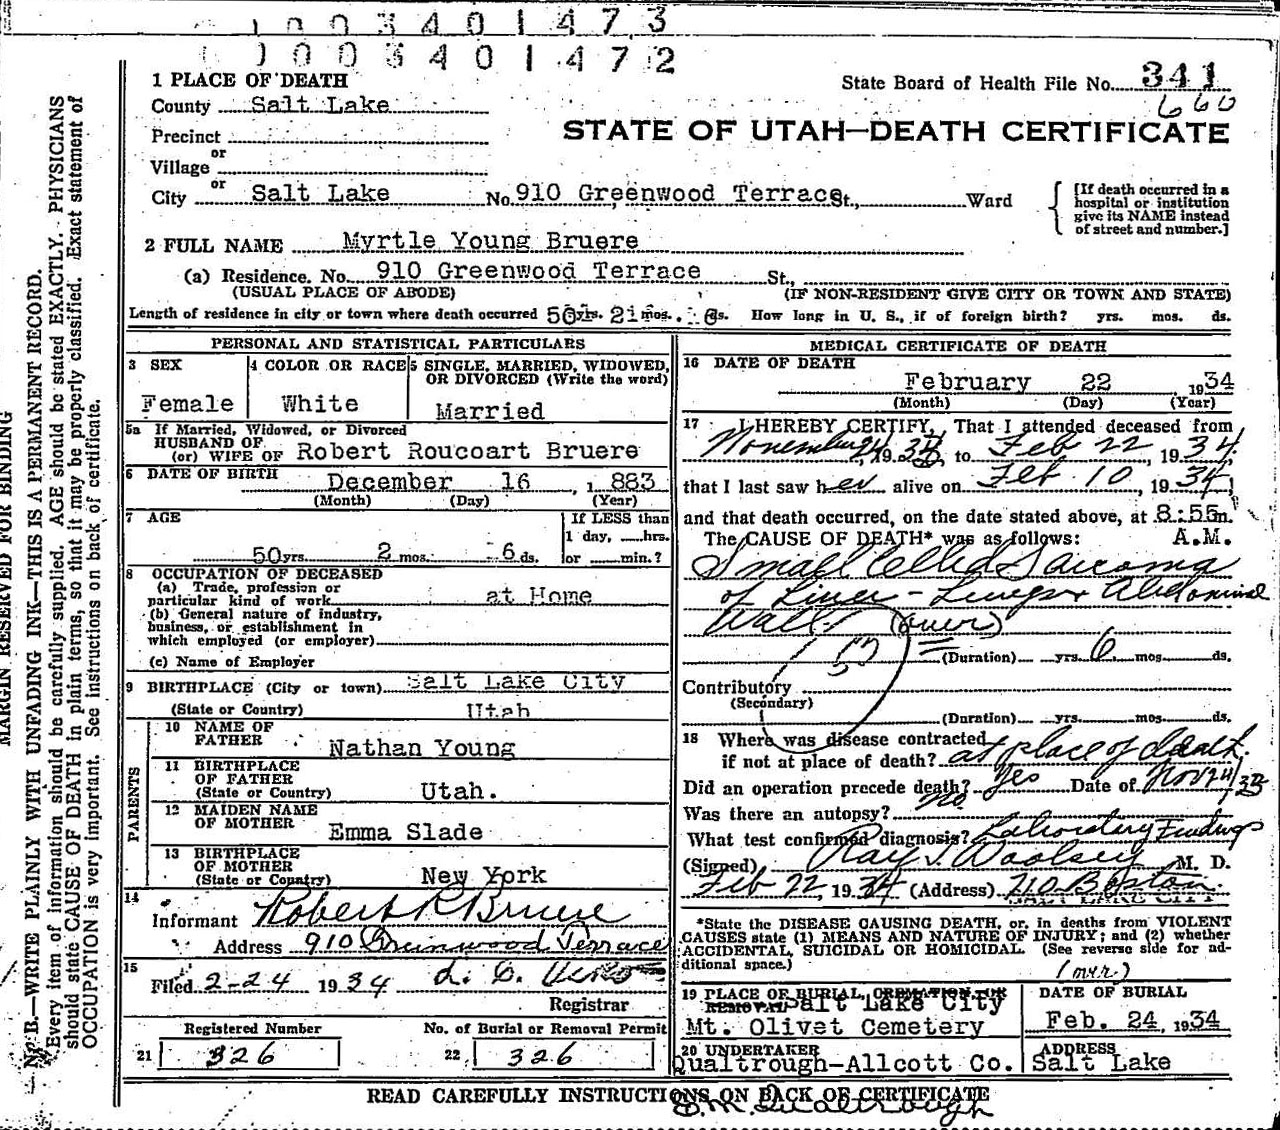 1 0 0 3 4 0 1 4 7 3
1 0 0 3 4 0 1 4 7 2
MARGIN RESERVED FOR BINDING
N. B.—WRITE PLAINLY WITH UNFADING INK—THIS IS A PERMANENT RECORD.
Every item of information should be carefully supplied. AGE should be stated EXACTLY. PHYSICIANS
should state CAUSE OF DEATH in plain terms, so that it may be properly classified. Exact statement of
OCCUPATION is very important. See instructions on back of certificate.
State Board of Health File No. 341
660
STATE OF UTAH—DEATH CERTIFICATE
1 PLACE OF DEATH
County Salt Lake
Precinct
or
Village
or
City Salt Lake No. 910 Greenwood Terrace St., Ward
[If death occurred in a
hospital or institution
give its NAME instead
of street and number.]
2 FULL NAME Myrtle Young Bruere
(a) Residence. No. 910 Greenwood Terrace St.,
(USUAL PLACE OF ABODE) (IF NON-RESIDENT GIVE CITY OR TOWN AND STATE)
Length of residence in city or town where death occurred 50 yrs. 2 mos. 6 ds. How long in U. S., if of foreign birth? yrs. mos. ds.
PERSONAL AND STATISTICAL PARTICULARS
3 SEX
Female
4 COLOR OR RACE
White
5 SINGLE, MARRIED, WIDOWED,
OR DIVORCED (Write the word)
Married
5a If Married, Widowed, or Divorced
HUSBAND OF
(or) WIFE OF Robert Roucoart Bruere
6 DATE OF BIRTH December 16, 1883
(Month) (Day) (Year)
7 AGE
50 yrs. 2 mos. 6 ds.
If LESS than
1 day, hrs.
or min.?
8 OCCUPATION OF DECEASED
(a) Trade, profession or
particular kind of work at Home
(b) General nature of industry,
business, or establishment in
which employed (or employer)
(c) Name of Employer
9 BIRTHPLACE (City or town) Salt Lake City
(State or Country) Utah
PARENTS
10 NAME OF
FATHER Nathan Young
11 BIRTHPLACE
OF FATHER
(State or Country) Utah.
12 MAIDEN NAME
OF MOTHER Emma Slade
13 BIRTHPLACE
OF MOTHER
(State or Country) New York
14
Informant Robert R Bruere
Address 910 Greenwood Terrace
15
Filed 2-24 1934
Registrar
Registered Number
21 326
No. of Burial or Removal Permit
22 326
MEDICAL CERTIFICATE OF DEATH
16 DATE OF DEATH
February 22 1934
(Month) (Day) (Year)
17 I HEREBY CERTIFY, That I attended deceased from
, 19 33, to Feb 22, 1934,
that I last saw her alive on Feb 10, 1934,
and that death occurred, on the date stated above, at 8:55 m.
The CAUSE OF DEATH* was as follows: A.M.
Small Celled Sarcoma
of Liver - Lungs & Abdominal
Wall (over)
53
(Duration) yrs. 6 mos ds.
Contributory
(Secondary)
(Duration) yrs. mos. ds.
18 Where was disease contracted
if not at place of death? at place of death.
Did an operation precede death? Yes Date of Nov 24/33
Was there an autopsy? no
What test confirmed diagnosis? Laboratory Findings
(Signed) Ray T. Woolsey M. D.
Feb 22, 1934 (Address) 710 Boston
SALT LAKE CITY
*State the DISEASE CAUSING DEATH, or, in deaths from VIOLENT
CAUSES state (1) MEANS AND NATURE OF INJURY; and (2) whether
ACCIDENTAL, SUICIDAL OR HOMICIDAL. (See reverse side for ad-
ditional space.)
(over)
19 PLACE OF BURIAL, CREMATION, OR
REMOVAL Salt Lake City
Mt. Olivet Cemetery
DATE OF BURIAL
Feb. 24, 1934
20 UNDERTAKER
Qualtrough-Allcott Co.
ADDRESS
Salt Lake
READ CAREFULLY INSTRUCTIONS ON BACK OF CERTIFICATE
S. M. Qualtrough